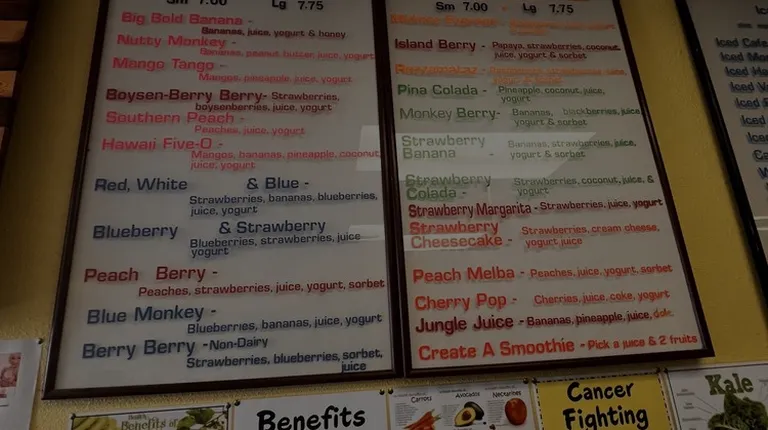 Sm 7.00 Lg 7.75
Big Bold Banana -
Bananas, juice, yogurt & honey
Nutty Monkey -
Bananas, peanut butter, juice, yogurt
Mango Tango -
Mangos, pineapple, juice, yogurt
Boysen-Berry Berry- Strawberries,
boysenberries, juice, yogurt
Southern Peach -
Peaches, juice, yogurt
Hawaii Five-O -
Mangos, bananas, pineapple, juice, coconut,
juice, yogurt
Red, White & Blue -
Strawberries, bananas, blueberries,
juice, yogurt
Blueberry & Strawberry
Blueberries, strawberries, juice
yogurt -
Peach Berry -
Peaches, strawberries, juice, yogurt, sorbet
Blue Monkey -
Blueberries, bananas, juice, yogurt
Berry Berry -Non-Dairy
Strawberries, blueberries, sorbet,
juice
Sm 7.00 - Lg 7.75
Island Berry - Papaya, strawberries, coconut,
juice, yogurt & sorbet
Pina Colada - Pineapple, coconut, juice,
yogurt
Monkey Berry- Bananas, blackberries, juice,
yogurt & sorbet
Strawberry
Banana - Bananas, strawberries, juice,
yogurt & sorbet
Strawberry
Colada - Strawberries, coconut, juice, &
yogurt
Strawberry Margarita - Strawberries, juice, yogurt
Strawberry
Cheesecake - Strawberries, cream cheese,
yogurt juice
Peach Melba - Peaches, juice, yogurt, sorbet
Cherry Pop - Cherries, juice, coke, yogurt
Jungle Juice - Bananas, pineapple, juice, dole
Create A Smoothie - Pick a juice & 2 fruits
Iced
Iced
Iced
Iced
Iced
Iced
Iced
Benefits of
Benefits
Carrots
Avocados
Nectarines
Cancer
Fighting
Kale